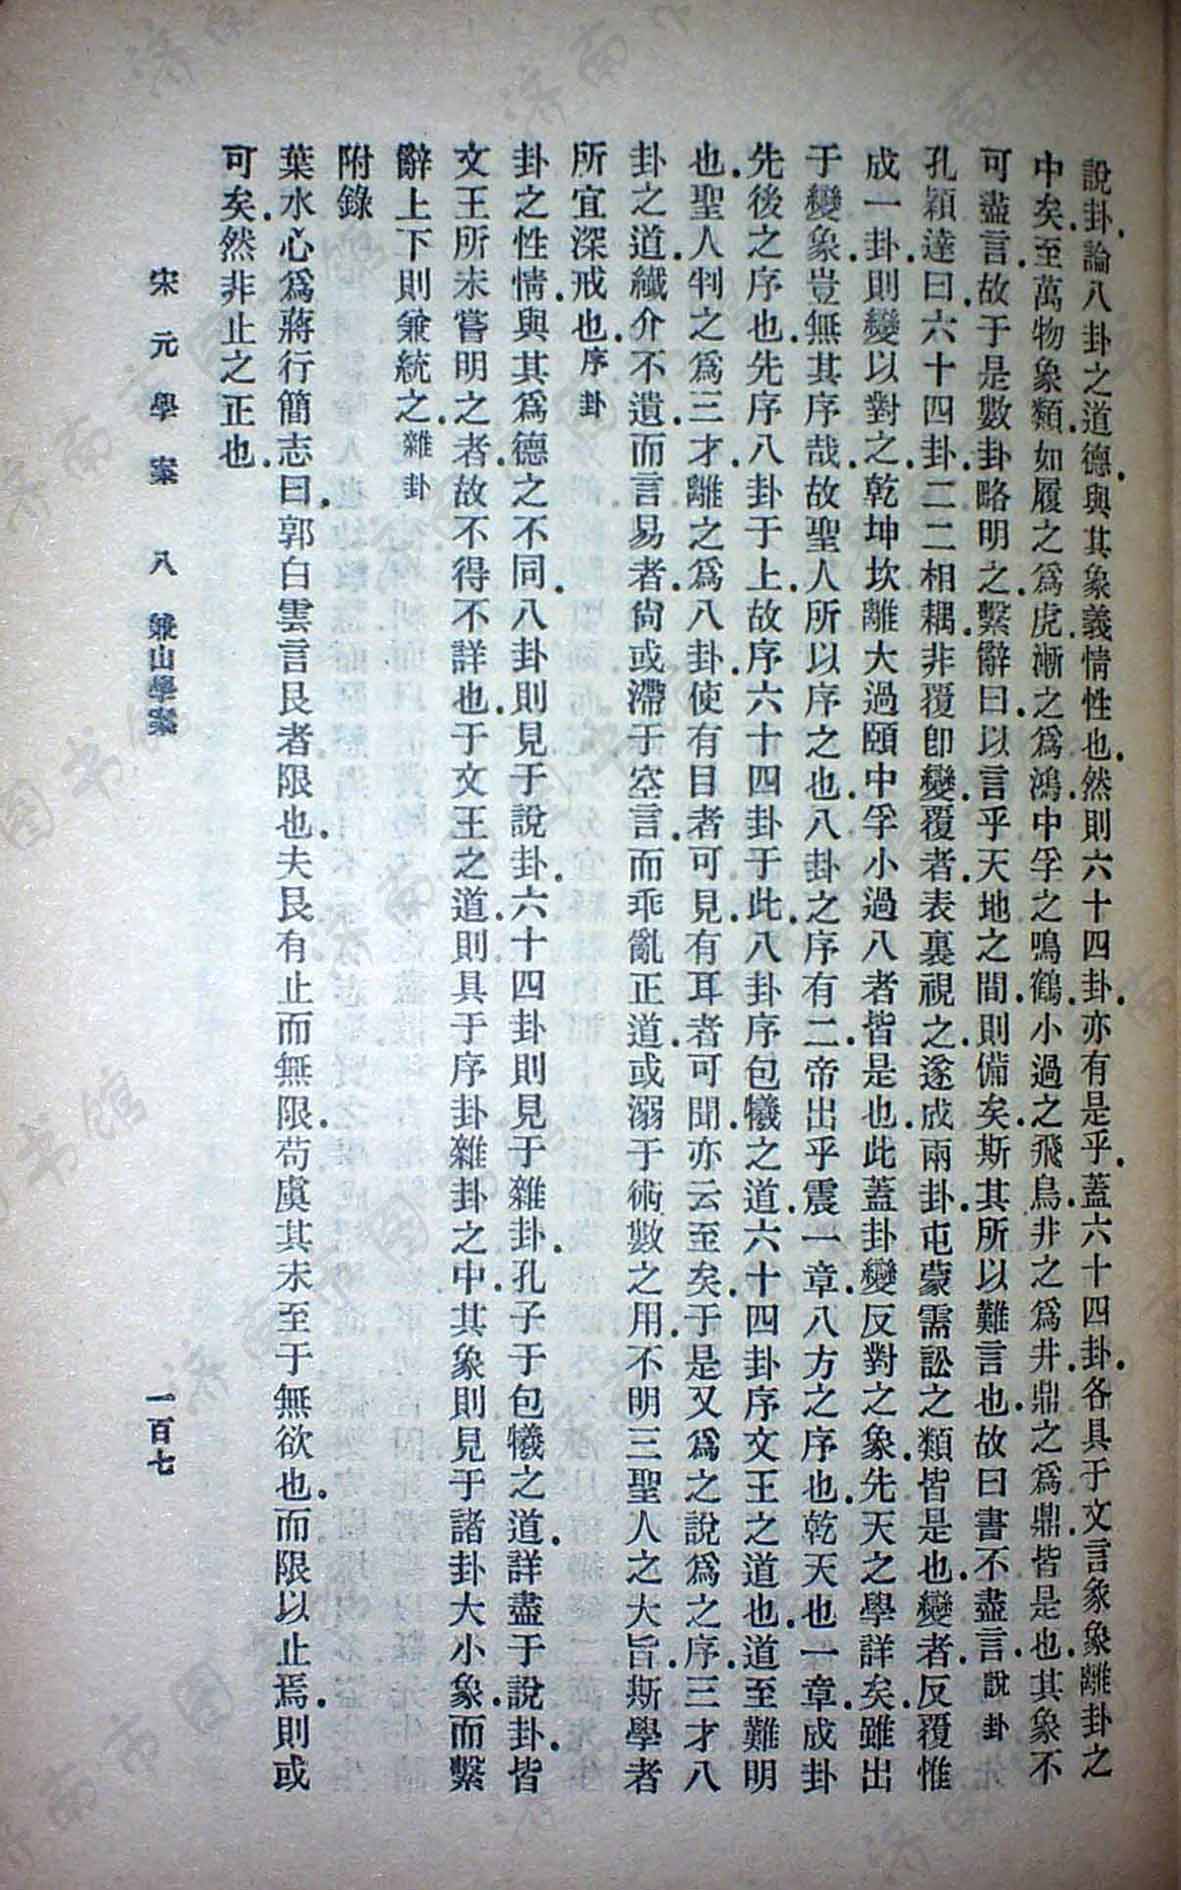 說卦論八卦之道德與其象義情性也然則六十四卦亦有是乎蓋六十四卦各具于文言彖象離卦之
中矣至萬物象類如履之爲虎漸之爲鴻中孚之鳴鶴小過之飛鳥井之爲井鼎之爲鼎皆是也其象不
可盡言故于是數卦略明之繫辭曰以言乎天地之間則備矣斯其所以難言也故曰書不盡言說卦
孔穎達曰六十四卦二二相耦非覆卽變覆者表裏視之遂成兩卦屯蒙需訟之類皆是也變者反覆惟
成一卦則變以對之乾坤坎離大過頤中孚小過八者皆是也此蓋卦變反對之象先天之學詳矣雖出
于變象豈無其序哉故聖人所以序之也八卦之序有二帝出乎震一章八方之序也乾天也一章成卦
先後之序也先序八卦于上故序六十四卦于此八卦序包犧之道六十四卦序文王之道也道至難明
也聖人判之爲三才離之爲八卦使有目者可見有耳者可聞亦云至矣于是又爲之說爲之序三才八
卦之道纖介不遺而言易者尙或滯于空言而乖亂正道或溺于術數之用不明三聖人之大旨斯學者
所宜深戒也序卦
卦之性情與其爲德之不同八卦則見于說卦六十四卦則見于雜卦孔子于包犧之道詳盡于說卦皆
文王所未嘗明之者故不得不詳也于文王之道則具于序卦雜卦之中其象則見于諸卦大小象而繫
辭上下則兼統之雜卦
附錄
葉水心爲蔣行簡志曰郭白雲言艮者限也夫艮有止而無限苟虞其未至于無欲也而限以止焉則或
可矣然非止之正也
宋元學案 八 兼山學案 一百七